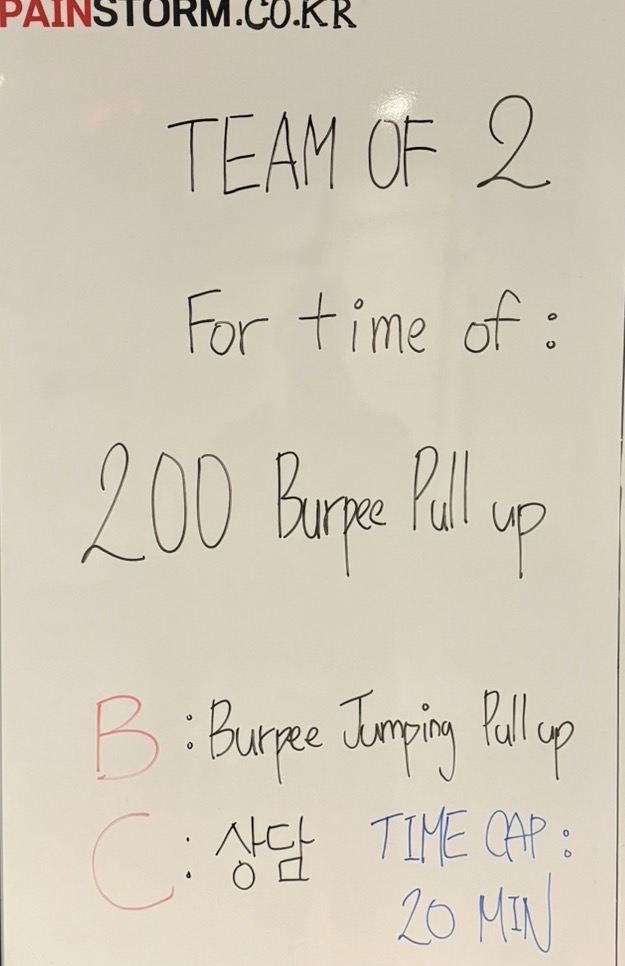 PAINSTORM.CO.KR
TEAM OF 2
For time of :
200 Burpee Pull up
B : Burpee Jumping Pull up
C : 상담
TIME CAP :
20 MIN